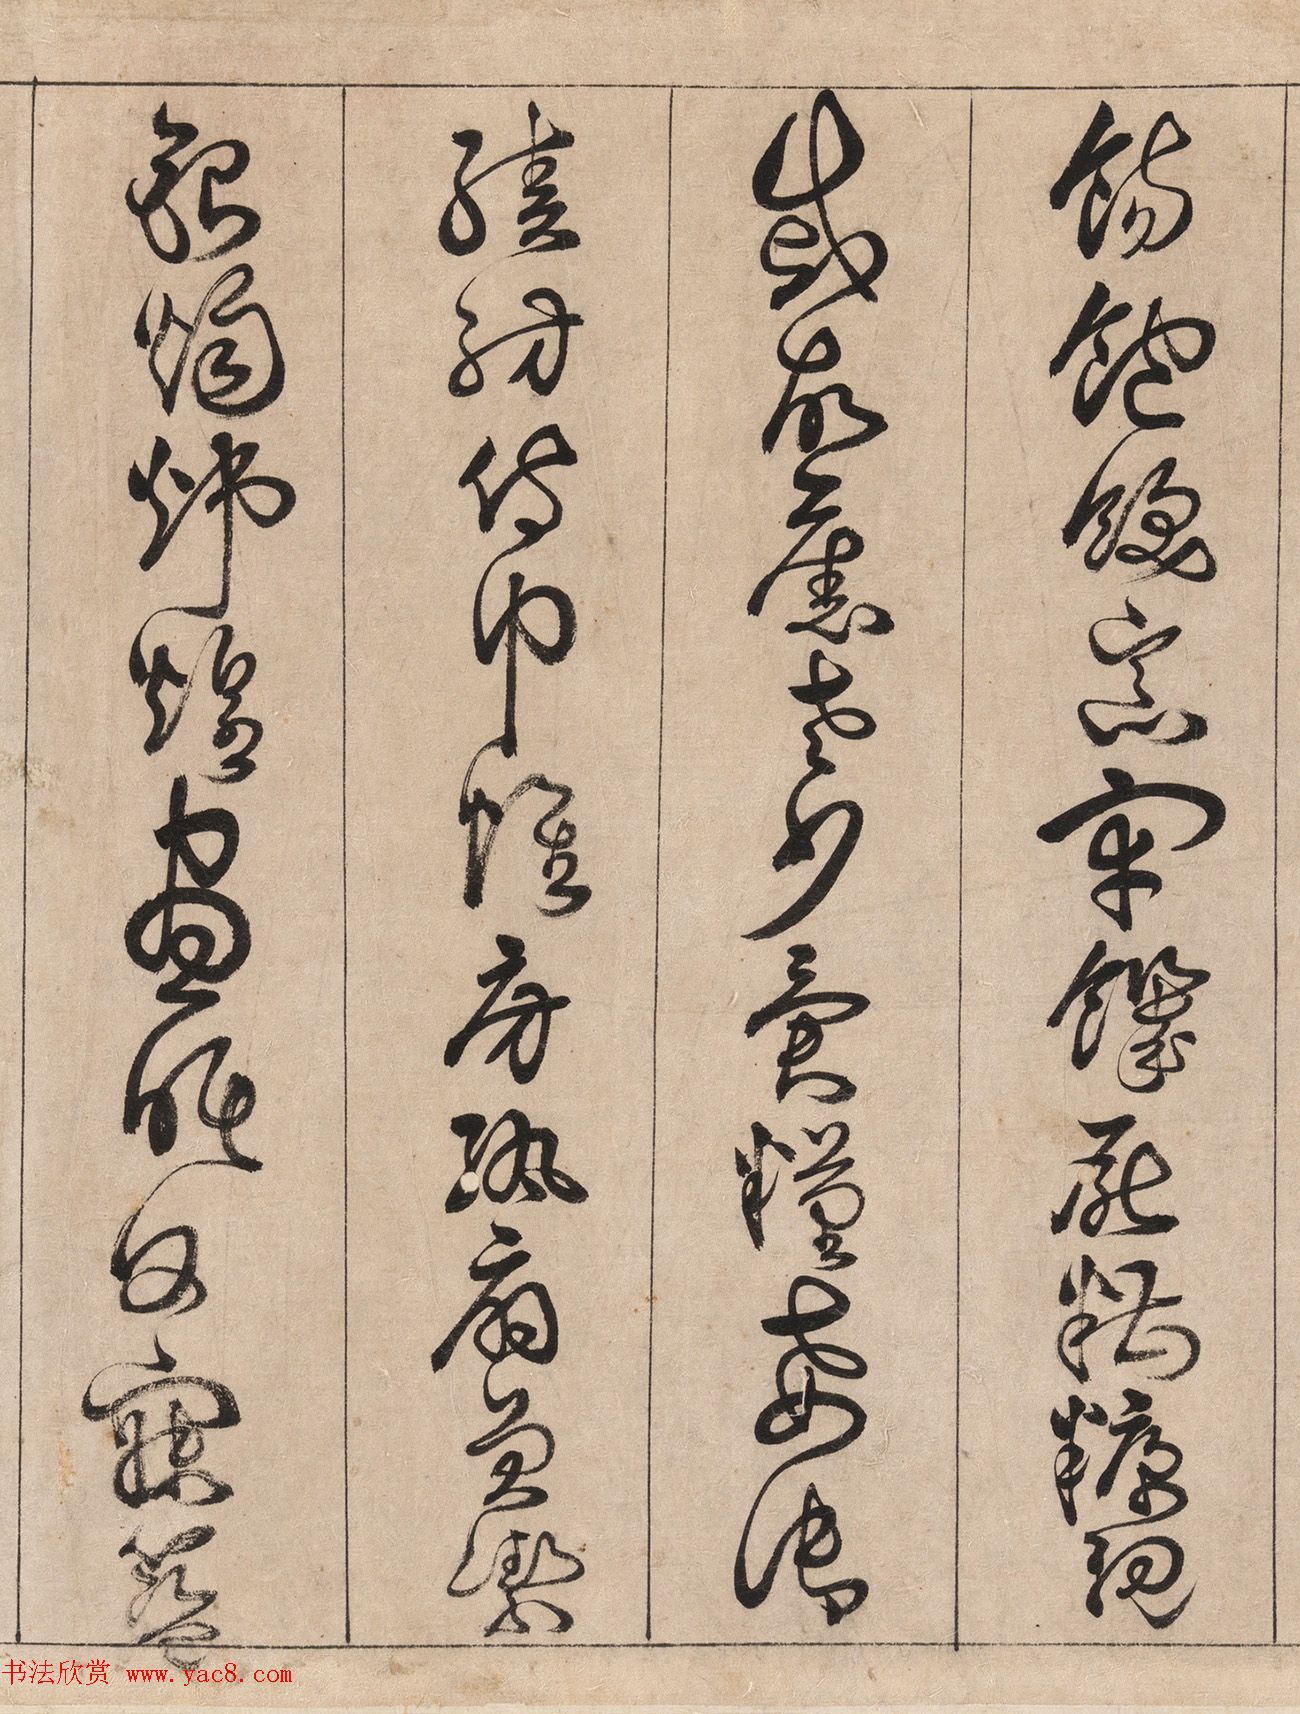 腸飽飫烹宰饑厭糟糠親
戚故舊老少異糧妾御
績紡侍巾帷房紈扇員潔
銀燭煒煌晝眠夕寐籃
书法欣赏 www.yac8.com